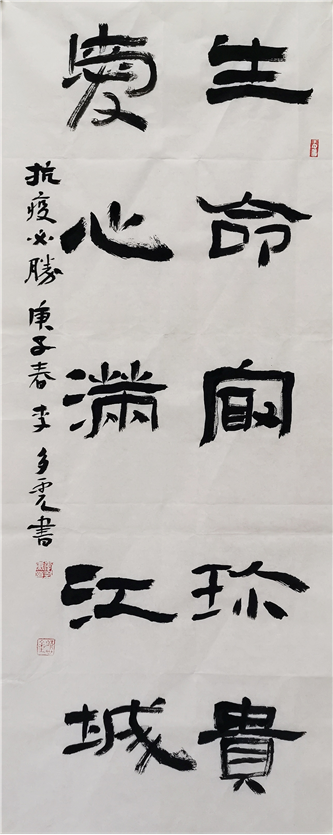 生命冣珍貴
愛心滿江城
抗疫必勝庚子春李多雲書